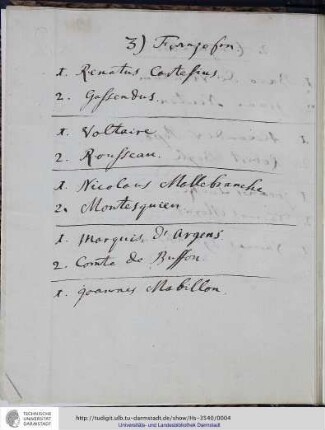 3) Franzosen
1. Renatus Cartesius.
2. Gassendus.
1. Voltaire
2. Rousseau.
1. Nicolaus Mallebranche
2. Montesquieu
1. Marquis d'Argens.
2. Comte de Buffon.
1. Joannes Mabillon.
TECHNISCHE
UNIVERSITÄT
DARMSTADT
http://tudigit.ulb.tu-darmstadt.de/show/Hs-2540/0004
Universitäts- und Landesbibliothek Darmstadt